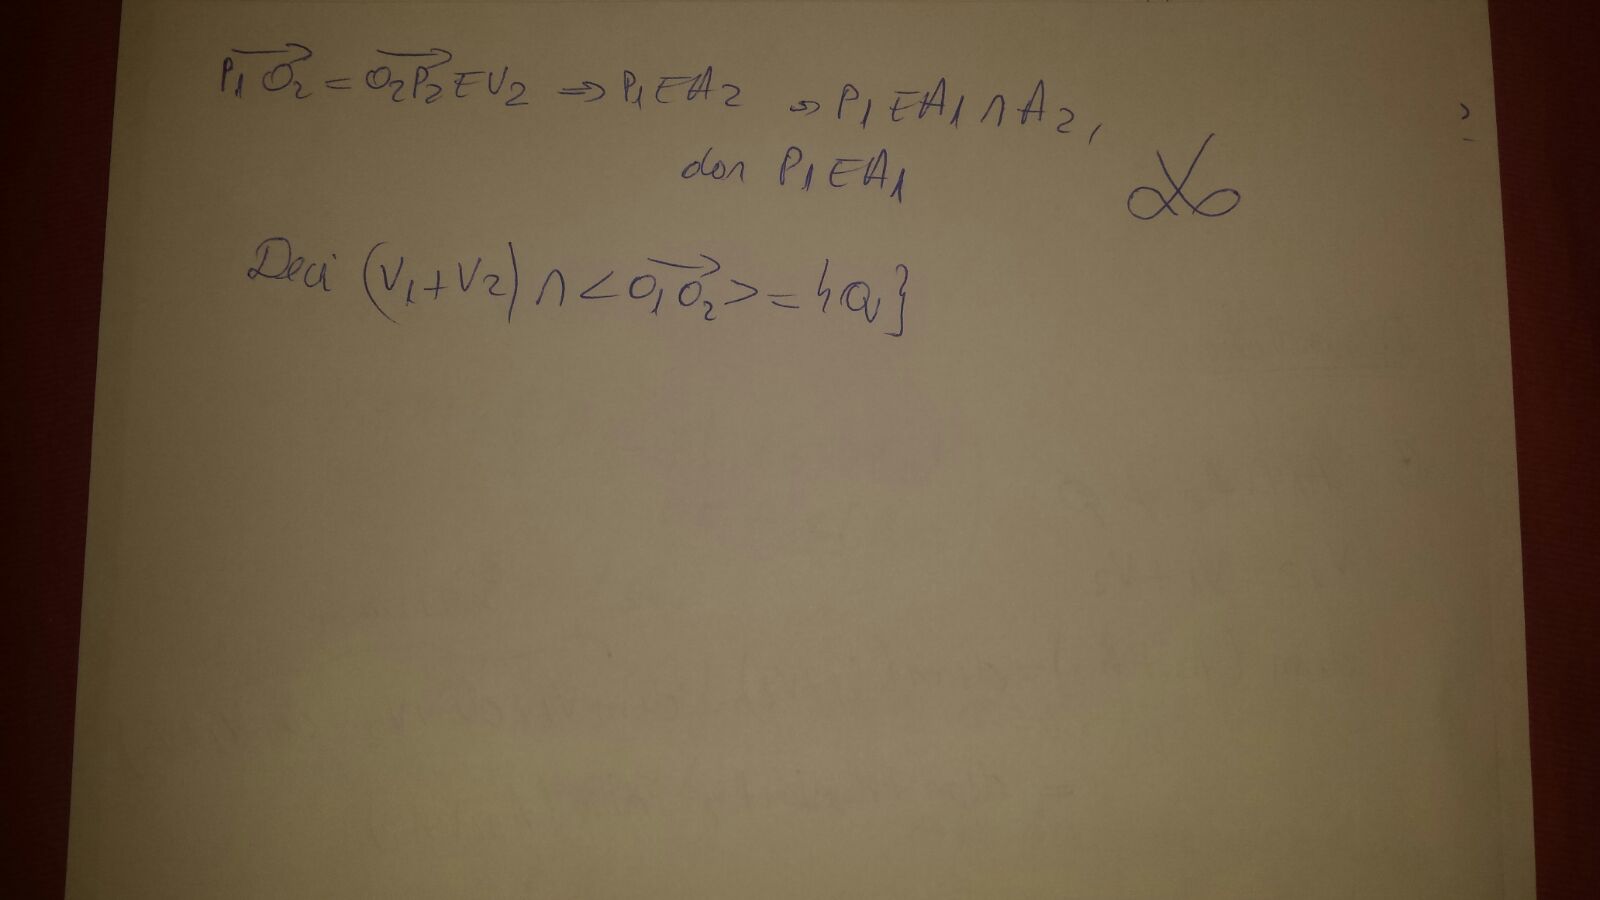 P₁O₂ = O₂P₂ ∈ V₂ ⇒ P₁ ∈ A₂ ⇒ P₁ ∈ A₁ ∩ A₂,
dar P₁ ∈ A₁
Deci (V₁ + V₂) ∩ <O₁O₂> = {0}